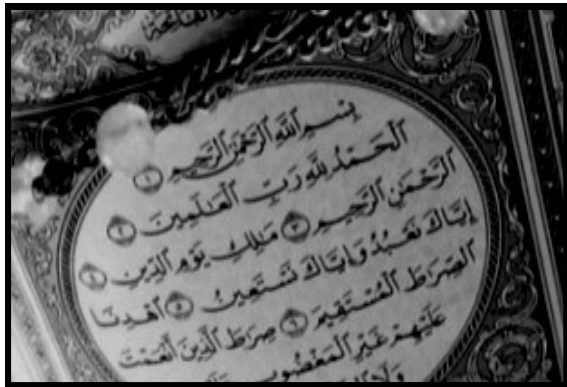 الفاتحة
بِسْمِ ٱللَّهِ ٱلرَّحْمَٰنِ ٱلرَّحِيمِ ١
ٱلْحَمْدُ لِلَّهِ رَبِّ ٱلْعَٰلَمِينَ ٢
ٱلرَّحْمَٰنِ ٱلرَّحِيمِ ٣ مَٰلِكِ يَوْمِ ٱلدِّينِ ٤
إِيَّاكَ نَعْبُدُ وَإِيَّاكَ نَسْتَعِينُ ٥ ٱهْدِنَا
ٱلصِّرَٰطَ ٱلْمُسْتَقِيمَ ٦ صِرَٰطَ ٱلَّذِينَ أَنْعَمْتَ
عَلَيْهِمْ غَيْرِ ٱلْمَغْضُوبِ